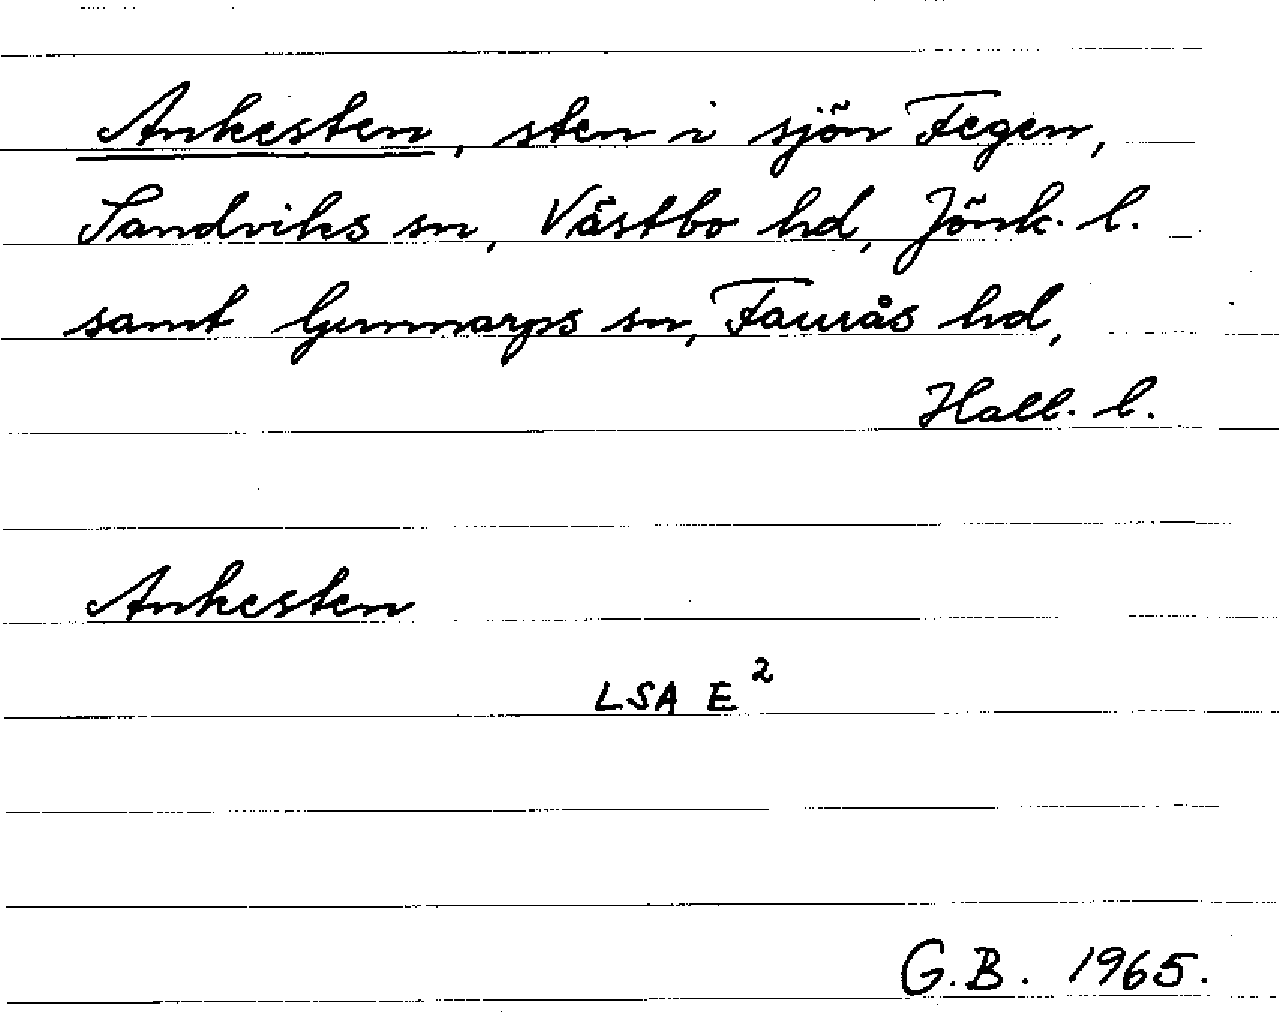 Ankesten, sten i sjön Fegen,
Sandviks sn, Västbo hd, Jönk. l.
samt Gunnarps sn, Faurås hd,
Hall. l.
Ankesten
LSA E²
G.B. 1965.